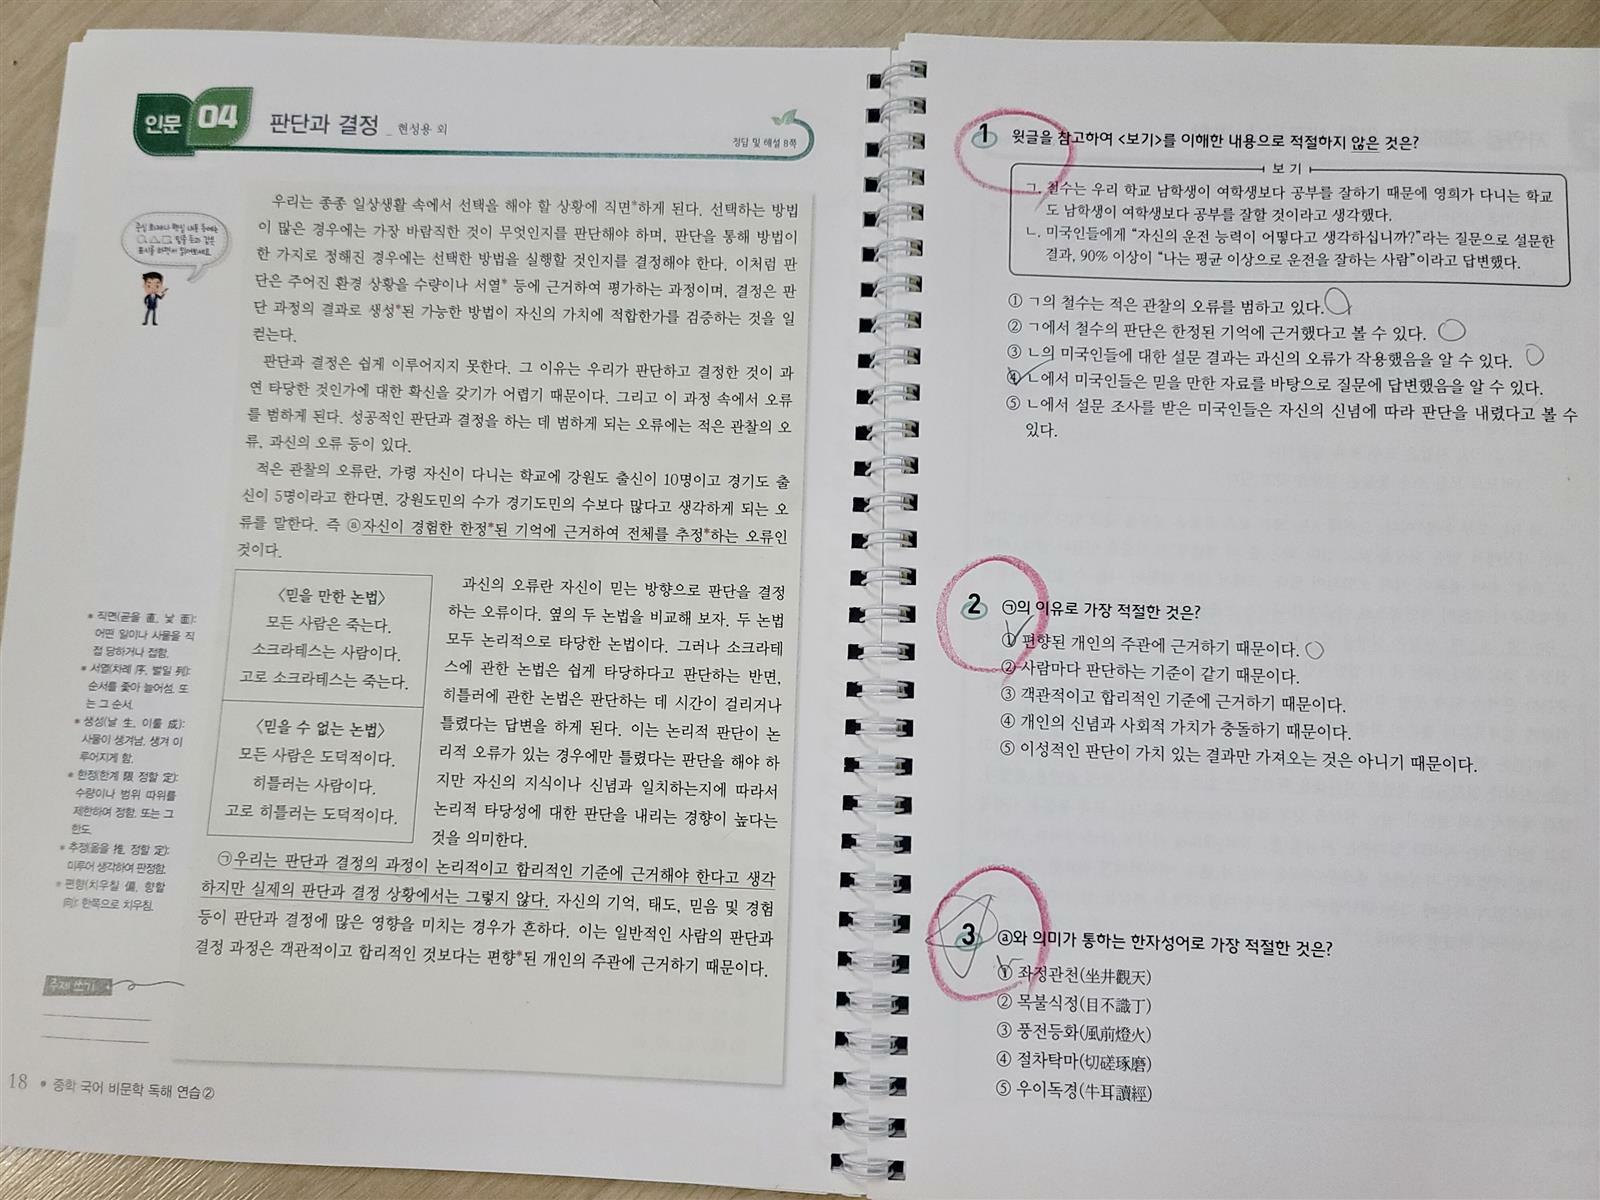 인문 04 판단과 결정 _ 현성용 외
정답 및 해설 8쪽
우리는 종종 일상생활 속에서 선택을 해야 할 상황에 직면*하게 된다. 선택하는 방법
이 많은 경우에는 가장 바람직한 것이 무엇인지를 판단해야 하며, 판단을 통해 방법이
한 가지로 정해진 경우에는 선택한 방법을 실행할 것인지를 결정해야 한다. 이처럼 판
단은 주어진 환경 상황을 수량이나 서열* 등에 근거하여 평가하는 과정이며, 결정은 판
단 과정의 결과로 생성*된 가능한 방법이 자신의 가치에 적합한가를 검증하는 것을 일
컫는다.
판단과 결정은 쉽게 이루어지지 못한다. 그 이유는 우리가 판단하고 결정한 것이 과
연 타당한 것인가에 대한 확신을 갖기가 어렵기 때문이다. 그리고 이 과정 속에서 오류
를 범하게 된다. 성공적인 판단과 결정을 하는 데 범하게 되는 오류에는 적은 관찰의 오
류, 과신의 오류 등이 있다.
적은 관찰의 오류란, 가령 자신이 다니는 학교에 강원도 출신이 10명이고 경기도 출
신이 5명이라고 한다면, 강원도민의 수가 경기도민의 수보다 많다고 생각하게 되는 오
류를 말한다. 즉 ⓐ자신이 경험한 한정*된 기억에 근거하여 전체를 추정*하는 오류인
것이다.
<믿을 만한 논법>
모든 사람은 죽는다.
소크라테스는 사람이다.
고로 소크라테스는 죽는다.
<믿을 수 없는 논법>
모든 사람은 도덕적이다.
히틀러는 사람이다.
고로 히틀러는 도덕적이다.
과신의 오류란 자신이 믿는 방향으로 판단을 결정
하는 오류이다. 옆의 두 논법을 비교해 보자. 두 논법
모두 논리적으로 타당한 논법이다. 그러나 소크라테
스에 관한 논법은 쉽게 타당하다고 판단하는 반면,
히틀러에 관한 논법은 판단하는 데 시간이 걸리거나
틀렸다는 답변을 하게 된다. 이는 논리적 판단이 논
리적 오류가 있는 경우에만 틀렸다는 판단을 해야 하
지만 자신의 지식이나 신념과 일치하는지에 따라서
논리적 타당성에 대한 판단을 내리는 경향이 높다는
것을 의미한다.
㉠우리는 판단과 결정의 과정이 논리적이고 합리적인 기준에 근거해야 한다고 생각
하지만 실제의 판단과 결정 상황에서는 그렇지 않다. 자신의 기억, 태도, 믿음 및 경험
등이 판단과 결정에 많은 영향을 미치는 경우가 흔하다. 이는 일반적인 사람의 판단과
결정 과정은 객관적이고 합리적인 것보다는 편향*된 개인의 주관에 근거하기 때문이다.
* 직면(곧을 直, 낯 面):
어떤 일이나 사물을 직
접 당하거나 접함.
* 서열(차례 序, 벌일 列):
순서를 좇아 늘어섬. 또
는 그 순서.
* 생성(날 生, 이룰 成):
사물이 생겨남. 생겨 이
루어지게 함.
* 한정(한계 限, 정할 定):
수량이나 범위 따위를
제한하여 정함. 또는 그
한도.
* 추정(옮을 推, 정할 定):
미루어 생각하여 판정함.
* 편향(치우칠 偏, 향할
向): 한쪽으로 치우침.
주제 쓰기
18 • 중학 국어 비문학 독해 연습②
1 윗글을 참고하여 <보기>를 이해한 내용으로 적절하지 않은 것은?
보 기
ㄱ. 철수는 우리 학교 남학생이 여학생보다 공부를 잘하기 때문에 영희가 다니는 학교
도 남학생이 여학생보다 공부를 잘할 것이라고 생각했다.
ㄴ. 미국인들에게 “자신의 운전 능력이 어떻다고 생각하십니까?”라는 질문으로 설문한
결과, 90% 이상이 “나는 평균 이상으로 운전을 잘하는 사람”이라고 답변했다.
① ㄱ의 철수는 적은 관찰의 오류를 범하고 있다.
② ㄱ에서 철수의 판단은 한정된 기억에 근거했다고 볼 수 있다.
③ ㄴ의 미국인들에 대한 설문 결과는 과신의 오류가 작용했음을 알 수 있다.
④ ㄴ에서 미국인들은 믿을 만한 자료를 바탕으로 질문에 답변했음을 알 수 있다.
⑤ ㄴ에서 설문 조사를 받은 미국인들은 자신의 신념에 따라 판단을 내렸다고 볼 수
있다.
2 ㉠의 이유로 가장 적절한 것은?
① 편향된 개인의 주관에 근거하기 때문이다.
② 사람마다 판단하는 기준이 같기 때문이다.
③ 객관적이고 합리적인 기준에 근거하기 때문이다.
④ 개인의 신념과 사회적 가치가 충돌하기 때문이다.
⑤ 이성적인 판단이 가치 있는 결과만 가져오는 것은 아니기 때문이다.
3 ⓐ와 의미가 통하는 한자성어로 가장 적절한 것은?
① 좌정관천(坐井觀天)
② 목불식정(目不識丁)
③ 풍전등화(風前燈火)
④ 절차탁마(切磋琢磨)
⑤ 우이독경(牛耳讀經)